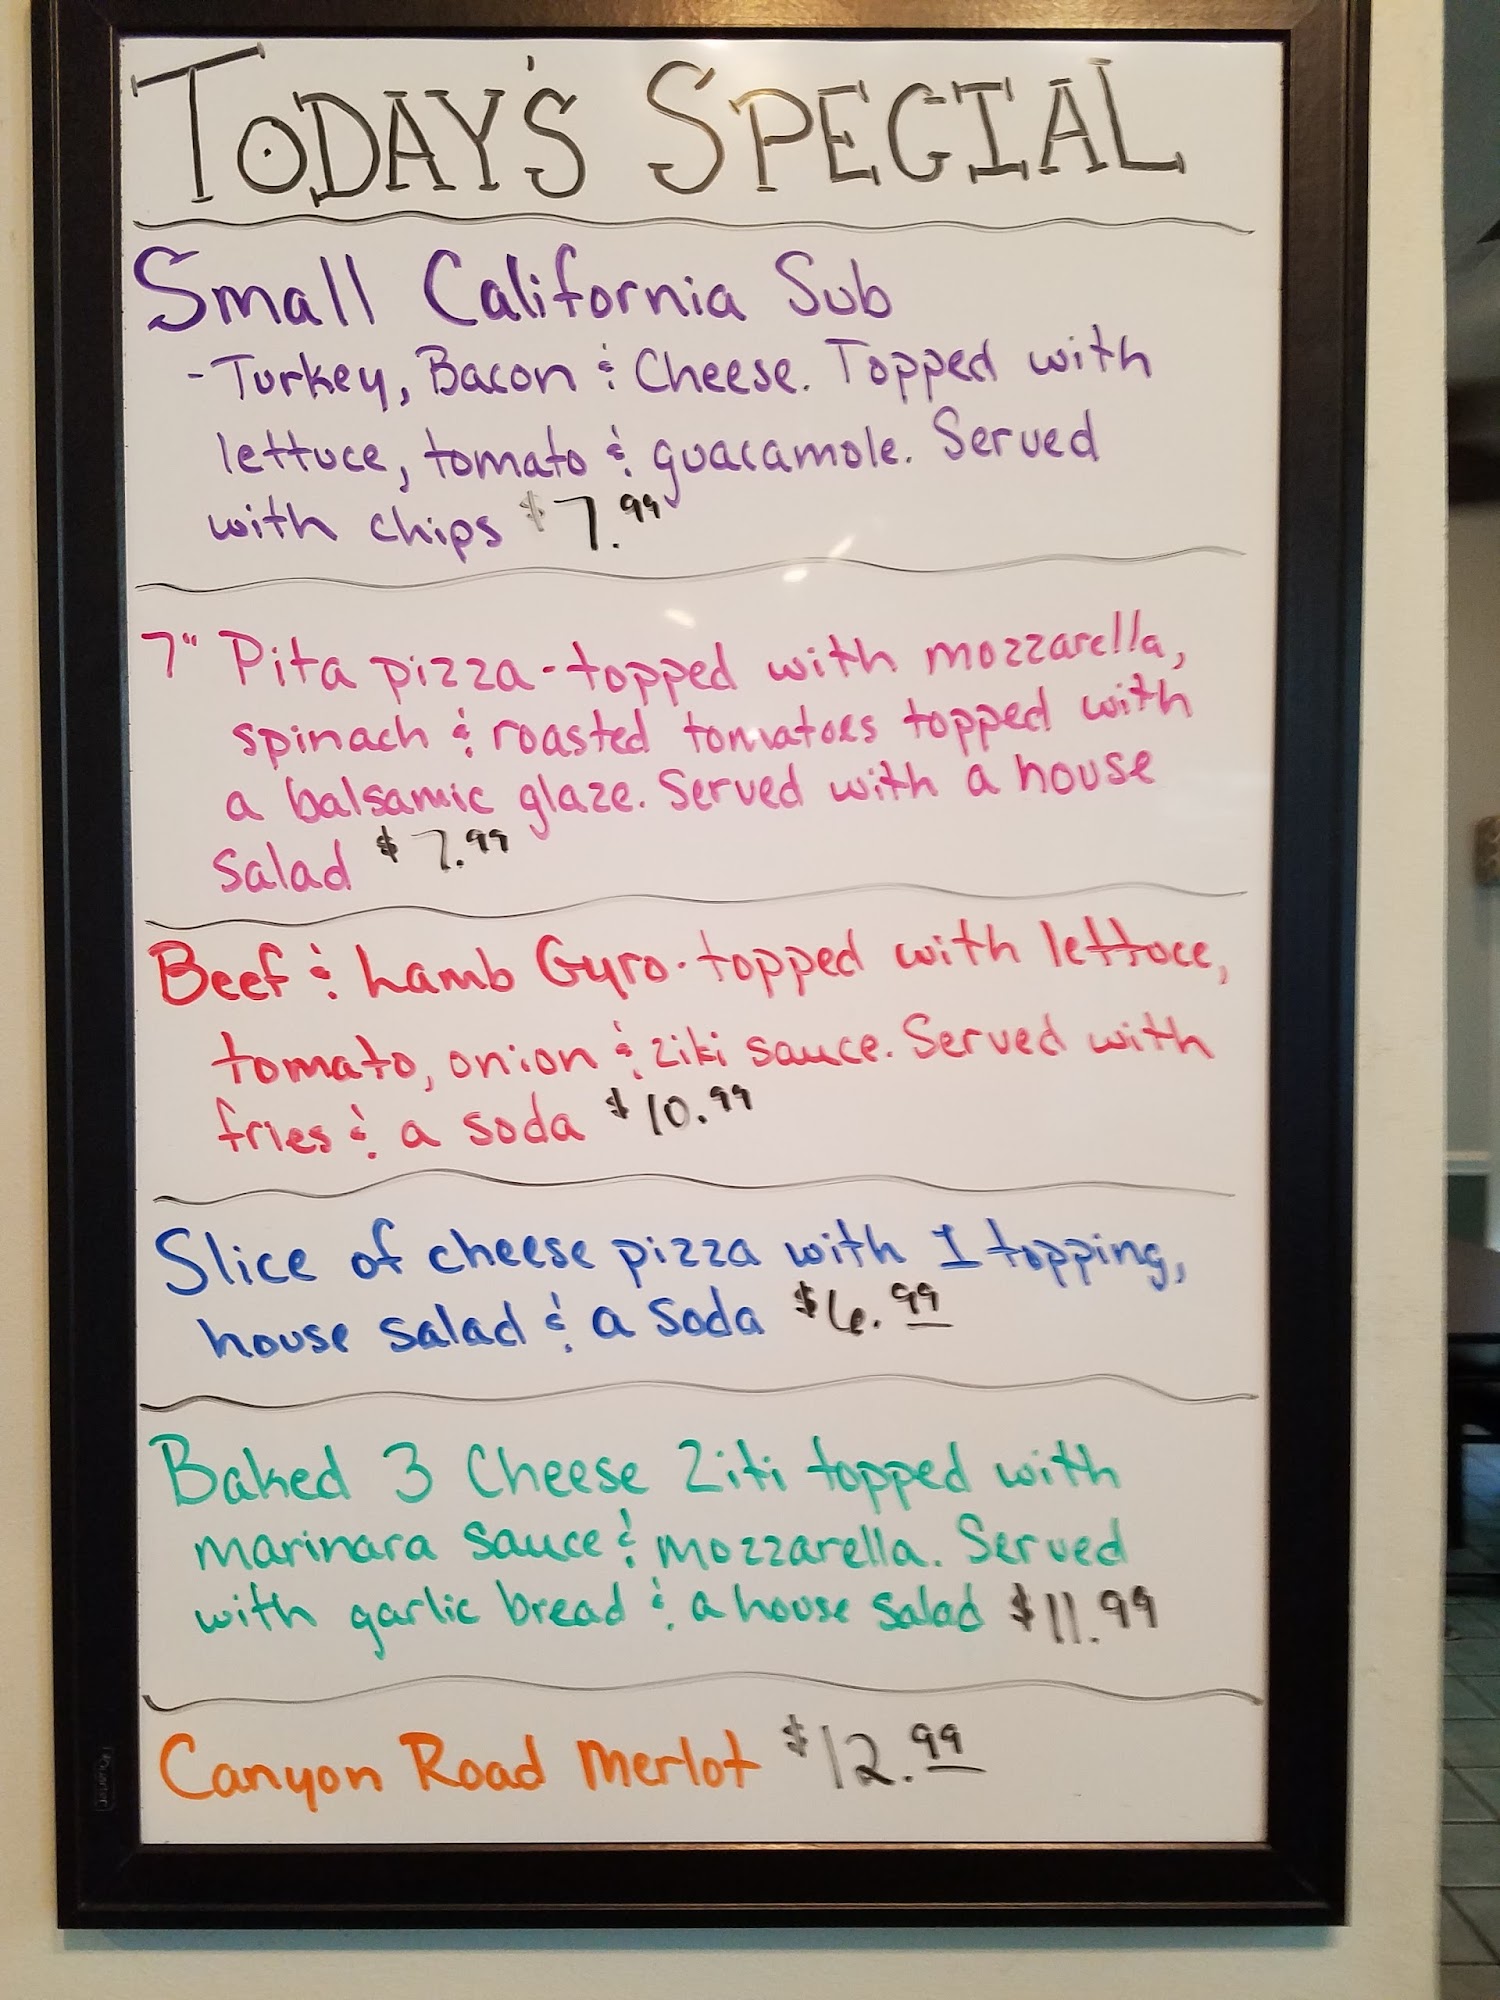 TODAY'S SPECIAL
Small California Sub
- Turkey, Bacon & Cheese. Topped with
lettuce, tomato & guacamole. Served
with chips $7.99
7" Pita pizza - topped with mozzarella,
spinach & roasted tomatoes topped with
a balsamic glaze. Served with a house
salad $7.99
Beef & Lamb Gyro - topped with lettuce,
tomato, onion & ziki sauce. Served with
fries & a soda $10.99
Slice of cheese pizza with 1 topping,
house salad & a soda $6.99
Baked 3 Cheese Ziti topped with
marinara sauce & mozzarella. Served
with garlic bread & a house salad $11.99
Canyon Road Merlot $12.99
Quartet